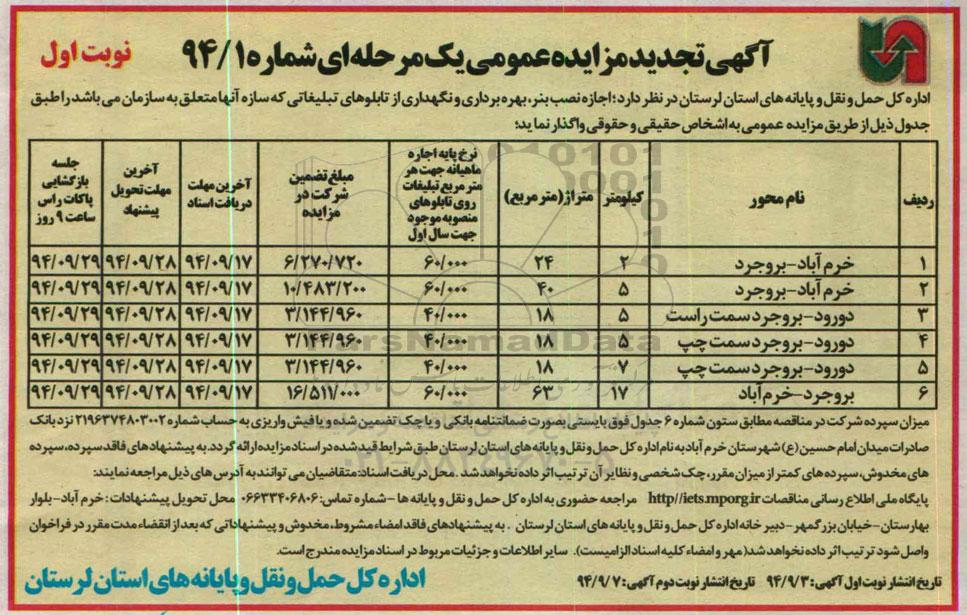 آگهی تجدید مزایده عمومی یک مرحله ای شماره ۹۴/۱
نوبت اول
اداره کل حمل و نقل و پایانه های استان لرستان در نظر دارد؛ اجازه نصب بنر، بهره برداری و نگهداری از تابلوهای تبلیغاتی که سازه آنها متعلق به سازمان می باشد را طبق
جدول ذیل از طریق مزایده عمومی به اشخاص حقیقی و حقوقی واگذار نماید؛
ردیف | نام محور | کیلومتر | متراژ (متر مربع) | نرخ پایه اجاره ماهیانه جهت هر متر مربع تبلیغات روی تابلوهای منصوبه موجود جهت سال اول | مبلغ تضمین شرکت در مزایده | آخرین مهلت دریافت اسناد | آخرین مهلت تحویل پیشنهاد | جلسه بازگشایی پاکات راس ساعت ۹ روز
۱ | خرم آباد-بروجرد | ۲ | ۲۴ | ۶۰/۰۰۰ | ۶/۲۷۰/۷۲۰ | ۹۴/۰۹/۱۷ | ۹۴/۰۹/۲۸ | ۹۴/۰۹/۲۹
۲ | خرم آباد-بروجرد | ۵ | ۴۰ | ۶۰/۰۰۰ | ۱۰/۴۸۳/۲۰۰ | ۹۴/۰۹/۱۷ | ۹۴/۰۹/۲۸ | ۹۴/۰۹/۲۹
۳ | دورود-بروجرد سمت راست | ۵ | ۱۸ | ۴۰/۰۰۰ | ۳/۱۴۴/۹۶۰ | ۹۴/۰۹/۱۷ | ۹۴/۰۹/۲۸ | ۹۴/۰۹/۲۹
۴ | دورود-بروجرد سمت چپ | ۵ | ۱۸ | ۴۰/۰۰۰ | ۳/۱۴۴/۹۶۰ | ۹۴/۰۹/۱۷ | ۹۴/۰۹/۲۸ | ۹۴/۰۹/۲۹
۵ | دورود-بروجرد سمت چپ | ۷ | ۱۸ | ۴۰/۰۰۰ | ۳/۱۴۴/۹۶۰ | ۹۴/۰۹/۱۷ | ۹۴/۰۹/۲۸ | ۹۴/۰۹/۲۹
۶ | بروجرد-خرم آباد | ۱۷ | ۶۳ | ۶۰/۰۰۰ | ۱۶/۵۱۱/۰۰۰ | ۹۴/۰۹/۱۷ | ۹۴/۰۹/۲۸ | ۹۴/۰۹/۲۹
میزان سپرده شرکت در مناقصه مطابق ستون شماره ۶ جدول فوق بایستی بصورت ضمانتنامه بانکی و یا چک تضمین شده و یا فیش واریزی به حساب شماره ۲۱۹۶۳۷۴۸۰۳۰۰۲ نزد بانک
صادرات میدان امام حسین (ع) شهرستان خرم آباد به نام اداره کل حمل و نقل و پایانه های استان لرستان طبق شرایط قید شده در اسناد مزایده ارائه گردد. به پیشنهادهای فاقد سپرده، سپرده
های مخدوش، سپرده های کمتر از میزان مقرر، چک شخصی و نظایر آن ترتیب اثر داده نخواهد شد. محل دریافت اسناد: متقاضیان می توانند به آدرس های ذیل مراجعه نمایند:
پایگاه ملی اطلاع رسانی مناقصات http//iets.mporg.ir مراجعه حضوری به اداره کل حمل و نقل و پایانه ها - شماره تماس: ۰۶۶۳۳۴۰۶۸۰۶ محل تحویل پیشنهادات: خرم آباد- بلوار
بهارستان - خیابان بزرگمهر- دبیر خانه اداره کل حمل و نقل و پایانه های استان لرستان . به پیشنهادهای فاقد امضاء مشروط، مخدوش و پیشنهاداتی که بعد از انقضاء مدت مقرر در فراخوان
واصل شود ترتیب اثر داده نخواهد شد (مهر و امضاء کلیه اسناد الزامیست). سایر اطلاعات و جزئیات مربوط در اسناد مزایده مندرج است.
تاریخ انتشار نوبت اول آگهی: ۹۴/۹/۳ تاریخ انتشار نوبت دوم آگهی: ۹۴/۹/۷
اداره کل حمل و نقل و پایانه های استان لرستان